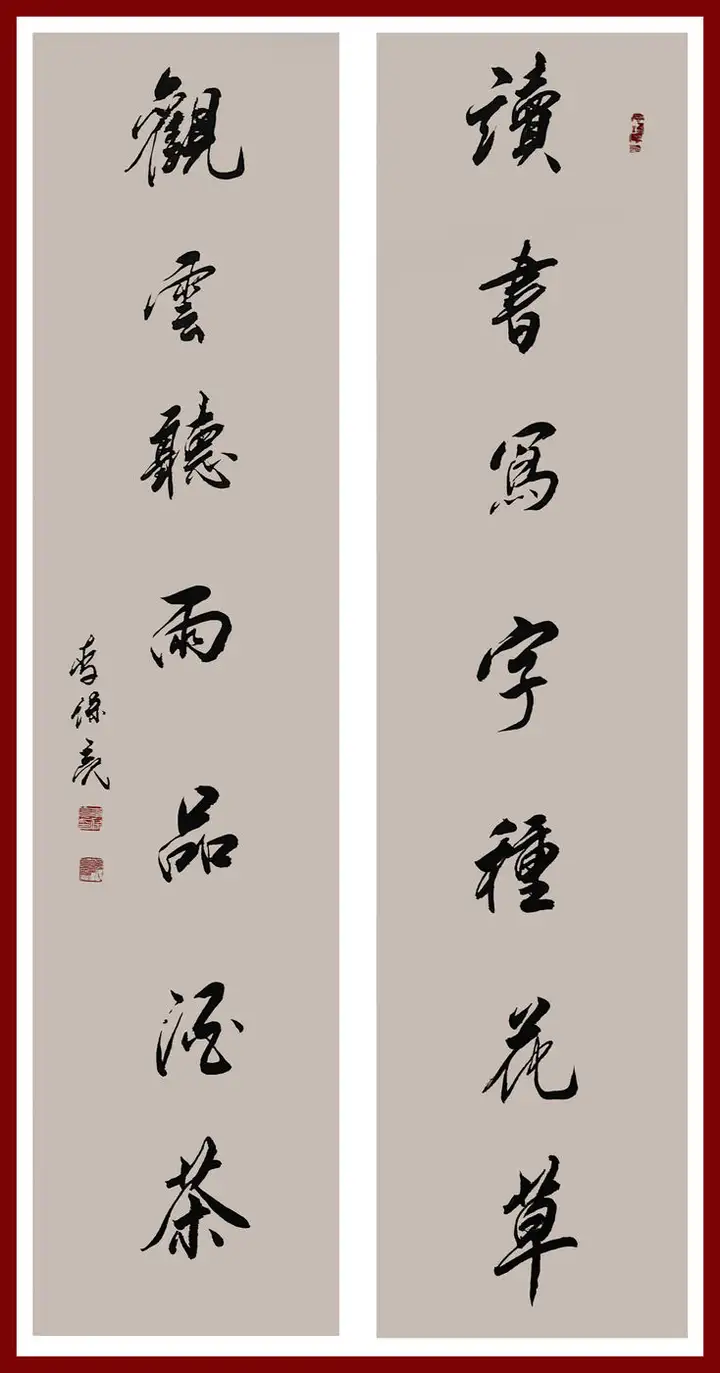 讀書寫字種花草
觀雲聽雨品酒茶
李保亮